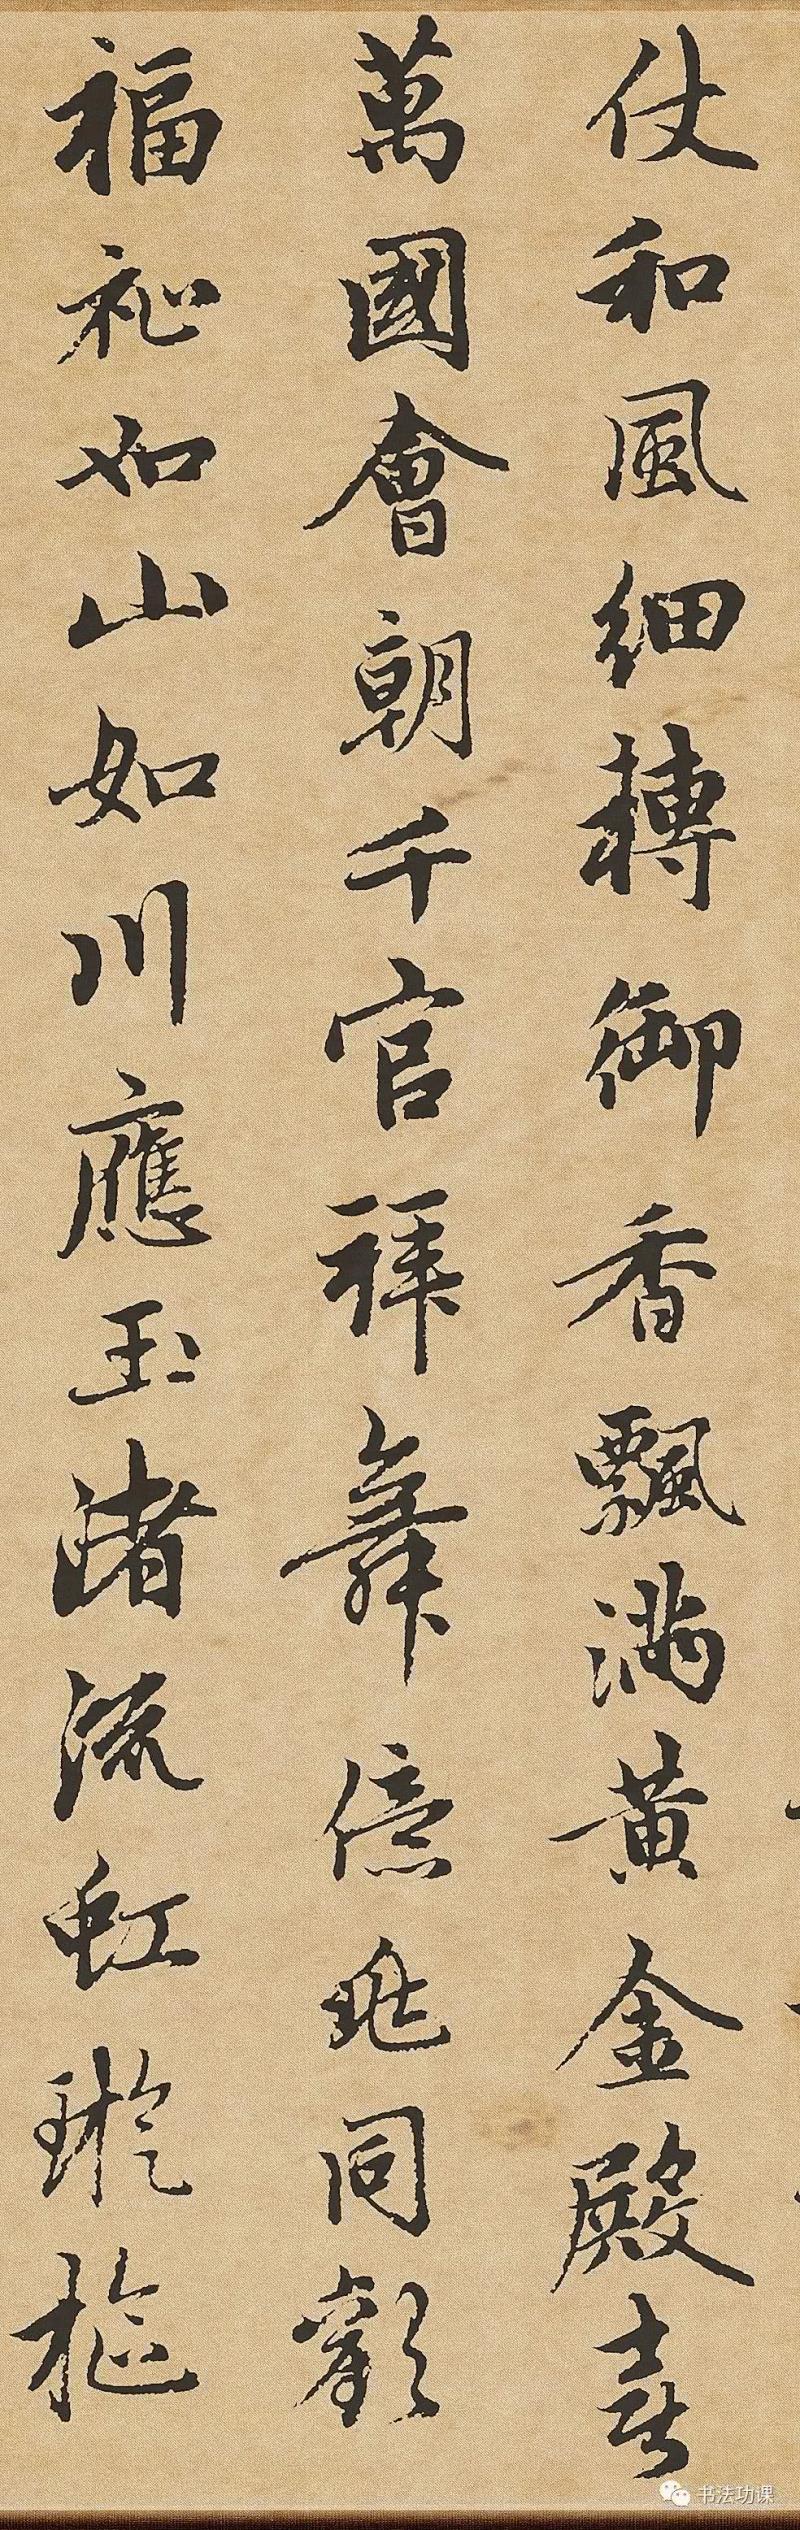 仗和風細轉御香飄满黄金殿喜
萬國會朝千官拜舞億兆同歡
福祉如山如川應玉渚流虹璇樞
书法功课